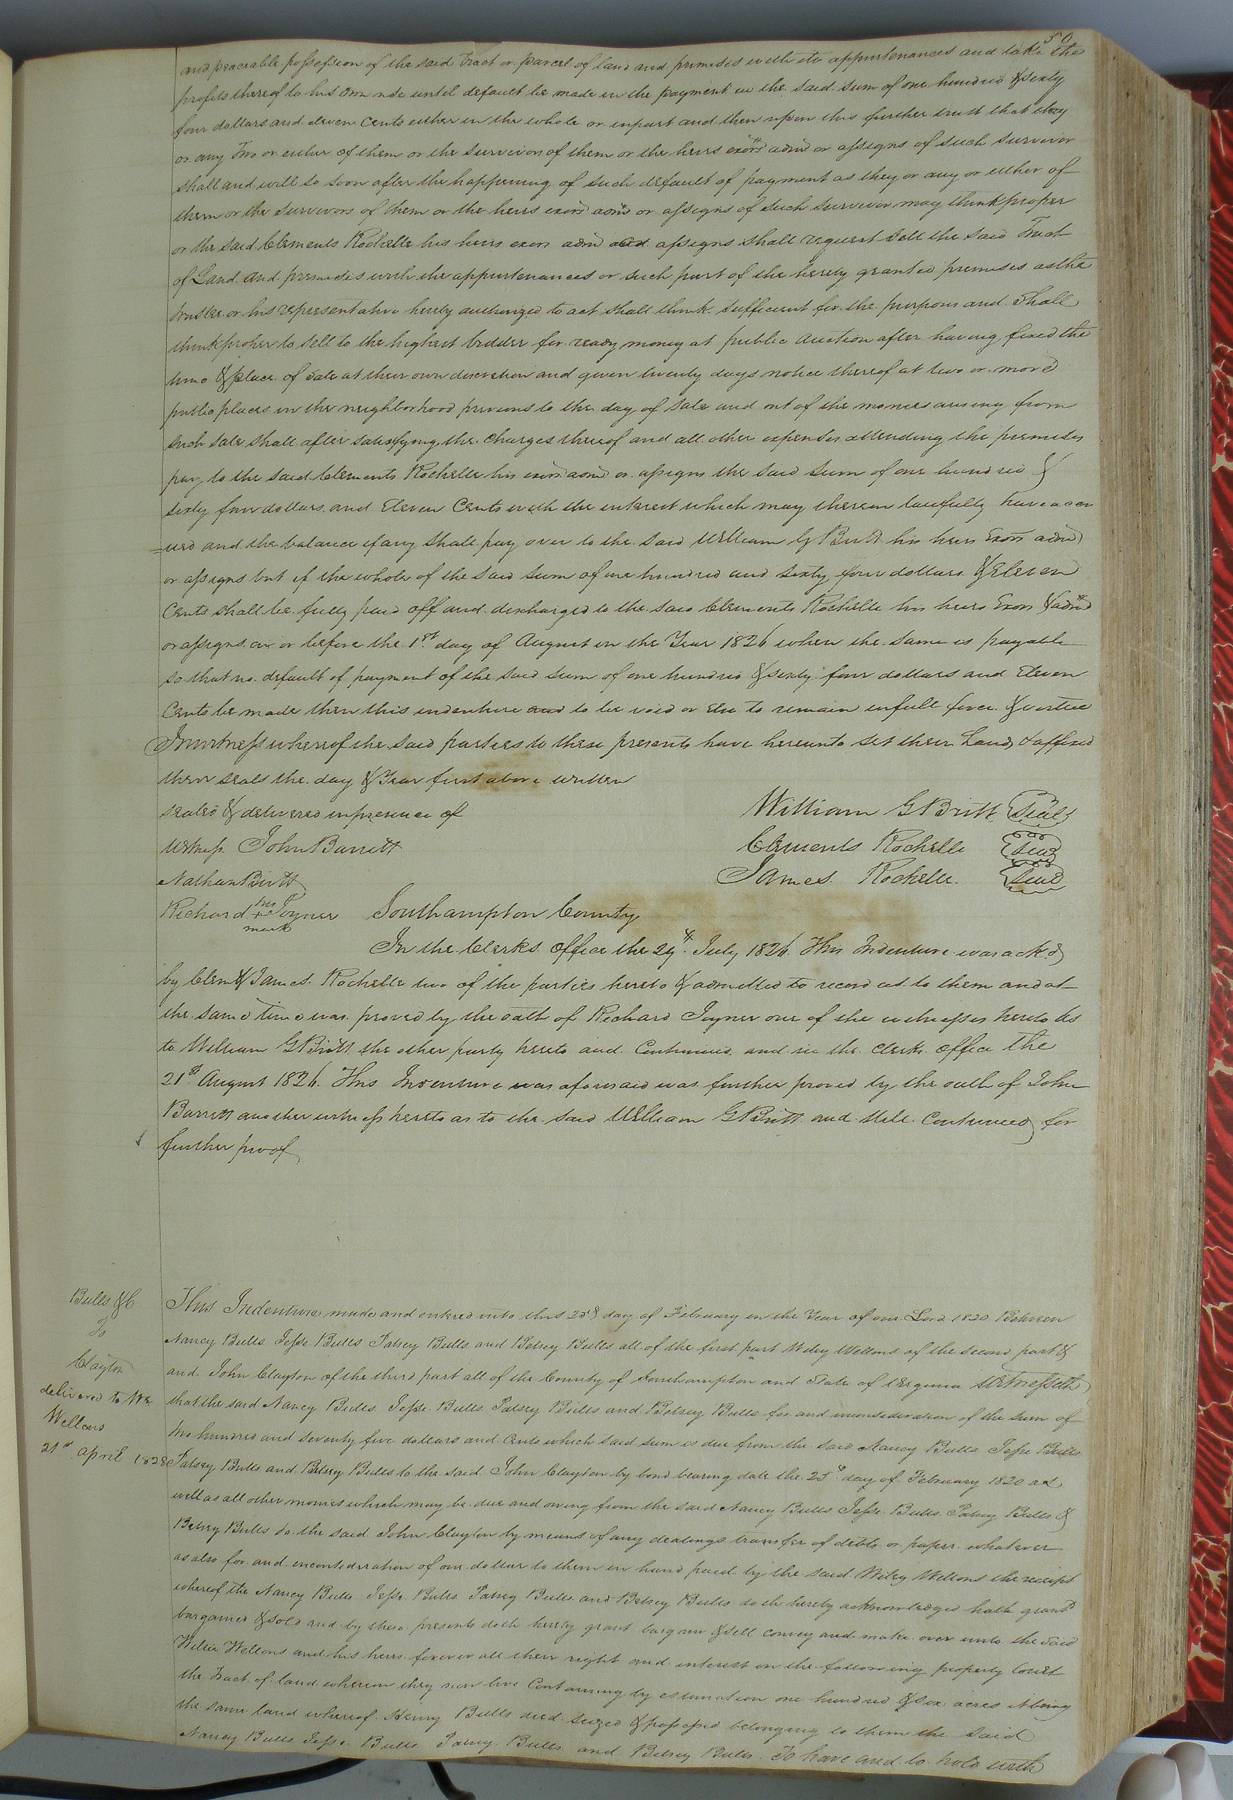 and peaceable possession of the said Tract or parcel of land and premises with its appurtenances and take the
profits thereof to his own use until default be made in the payment in the said sum of one hundred & sixty
four dollars and eleven Cents either in the whole or in part and then upon this further trust that they
or any Two or either of them or the survivor of them or the heirs exors admrs or assigns of such survivor
shall and will so soon after the happening of such default of payment as they or any or either of
them or the survivors of them or the heirs exors admrs or assigns of such survivor may think proper
or the said Clements Rochelle his heirs exors admrs and assigns shall request Sell the said Tract
of Land and premises with the appurtenances or such part of the hereby granted premises as the
trustee or his representative hereby authorized to act shall think sufficient for the purpose and shall
think proper to sell to the highest bidder for ready money at public auction after having fixed the
time & place of sale at their own discretion and given twenty days notice thereof at two or more
public places in the neighborhood previous to the day of sale and out of the monies arising from
such sale shall after satisfying the charges thereof and all other expenses attending the premises
pay to the said Clements Rochelle his exors admrs or assigns the said sum of one hundred &
sixty four dollars and Eleven Cents with the interest which may thereon lawfully have accru
=ued and the balance if any shall pay over to the said William G Britt his heirs Exors admrs
or assigns but if the whole of the said sum of one hundred and sixty four dollars & Eleven
Cents shall be fully paid off and discharged to the said Clements Rochelle his heirs Exors & admrs
or assigns on or before the 1st day of August in the Year 1826 when the same is payable
so that no default of payment of the said sum of one hundred & sixty four dollars and Eleven
Cents be made then this indenture and to be void or Else to remain in full force & virtue
In witness whereof the said parties to these presents have hereunto set their hands & affixed
their seals the day & Year first above written
sealed & delivered in presence of
William G Britt Seal
Witness John Barrett
Clements Rochelle Seal
Nathan Britt
James Rochelle. Seal
Richard his + Joyner mark
Southampton County
In the Clerks Office the 29th July 1826 This Indenture was ackd
by Clem & James Rochelle two of the parties hereto & admitted to record as to them and at
the same Time was proved by the oath of Richard Joyner one of the witnesses hereto as
to William G Britt the other party hereto and Continued and in the Clerks office the
21st August 1826. This Indenture was aforesaid was further proved by the oath of John
Barrett another witness hereto as to the said William G Britt and still Continued for
further proof
Bulls & C
To
Clayton
delivered to Wm
Wellons
21st april 1828
This Indenture made and entered into this 25th day of February in the Year of our Lord 1820 Between
Nancy Bulls Jesse Bulls Patsey Bulls and Betsey Bulls all of the first part Wiley Wellons of the second part &
and John Clayton of the third part all of the County of Southampton and State of Virginia Witnesseth
that the said Nancy Bulls Jesse Bulls Patsey Bulls and Betsey Bulls for and in consideration of the sum of
two hundred and seventy five dollars and Cents which said sum is due from the said Nancy Bulls Jesse Bulls
Patsey Bulls and Betsey Bulls to the said John Clayton by bond bearing date the 25th day of February 1820 as
well as all other monies which may be due and owing from the said Nancy Bulls Jesse Bulls Patsey Bulls &
Betsey Bulls to the said John Clayton by means of any dealings transfer of debts or paper whatever
as also for and in consideration of one dollar to them in hand paid by the said Wiley Wellons the receipt
whereof the Nancy Bulls Jesse Bulls Patsey Bulls and Betsey Bulls do the hereby acknowledged hath grant
bargained & sold and by these presents doth hereby grant bargain & sell convey and make over unto the said
Wilie Wellons and his heirs forever all their right and interest in the following property (to wit
the Tract of land whereon they now live Containing by estimation one hundred & six acres it being
the same land whereof Henry Bulls died seized & possessed belonging to them the said
Nancy Bulls Jesse Bulls Patsey Bulls and Betsey Bulls. To have and to hold with